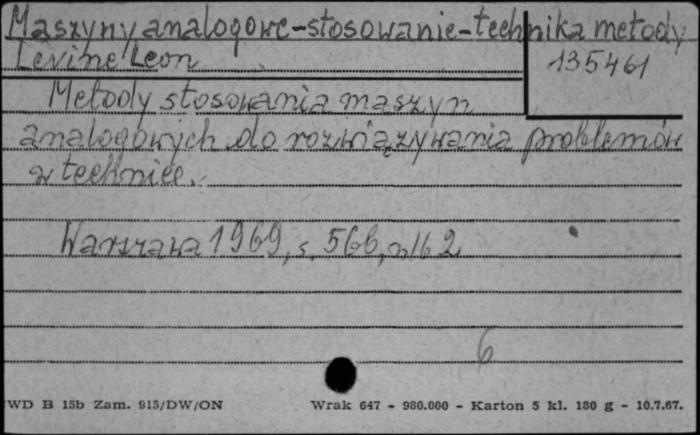 Maszyny analogowe-stosowanie-technika metody
Levine Leon
135461
Metody stosowania maszyn
analogowych do rozwiązywania problemów
w technice.
Warszawa 1969, s. 566, 2
6
WD B 15b Zam. 915/DW/ON Wrak 647 - 980.000 - Karton 5 kl. 180 g - 10.7.67.